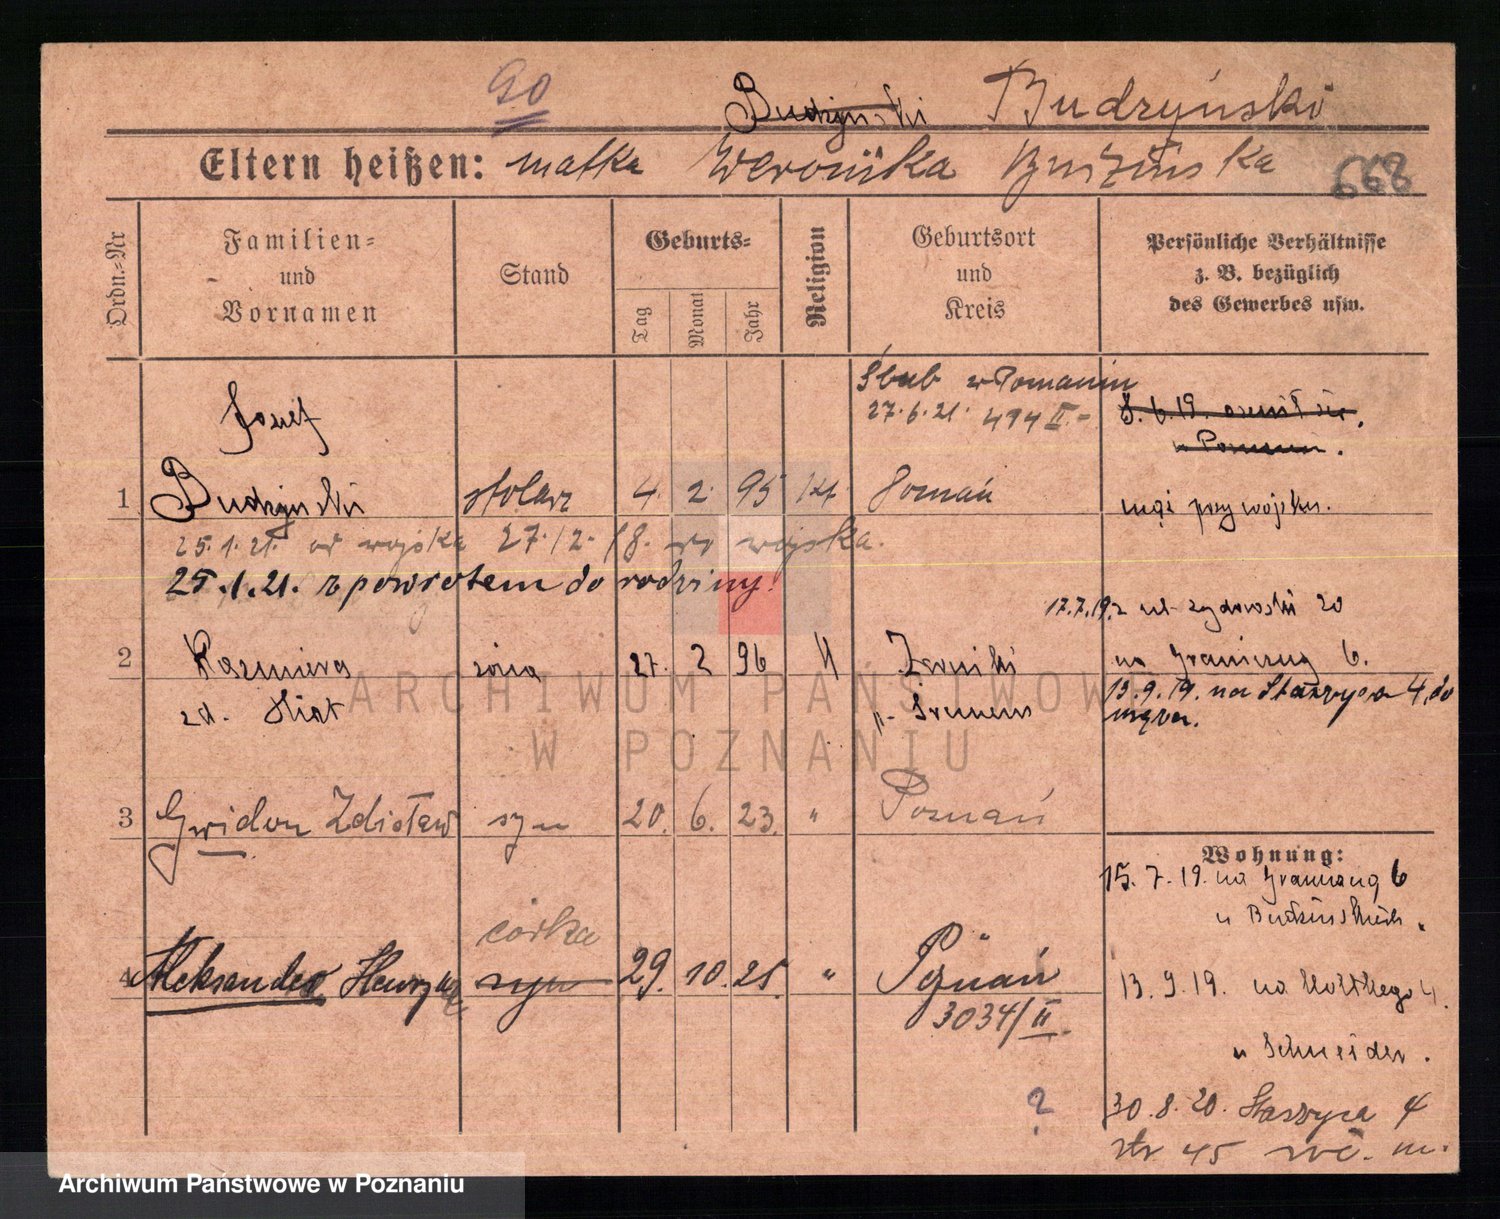 90
Budzyński Budzyński
Eltern heißen: matka Weronika 668
Ordn.-Nr
Familien- und Vornamen
Stand
Geburts-
Tag
Monat
Jahr
Religion
Geburtsort und Kreis
Persönliche Verhältnisse z. B. bezüglich des Gewerbes usw.
Ślub w Poznaniu
27.6.21. 494 II.-
Józef
1 Budzyński stolarz 4. 2. 95 kt. Poznań
mąż przy wojsku.
25.1.21. od wojska 27.12.18. do wojska.
25.1.21. z powrotem do rodziny.
17.7.19. ul. Żydowski 20
2 Kazmiera żona 27. 2 96 "
na Graniczną 6.
13.9.19. na Staszyca 4, do
męża.
3 Gwidon Zdisław syn 20. 6. 23. " Poznań
Wohnung:
15.7.19. na Graniczną 6
u
córka
4 Aleksander syn 29. 10. 25. " Poznań
3034/II.
13.9.19. na Moltkego 4.
u Schneider.
?
30.8.20. Staszyca 4
45 m.
ARCHIWUM PAŃSTWOWE
W POZNANIU
Archiwum Państwowe w Poznaniu